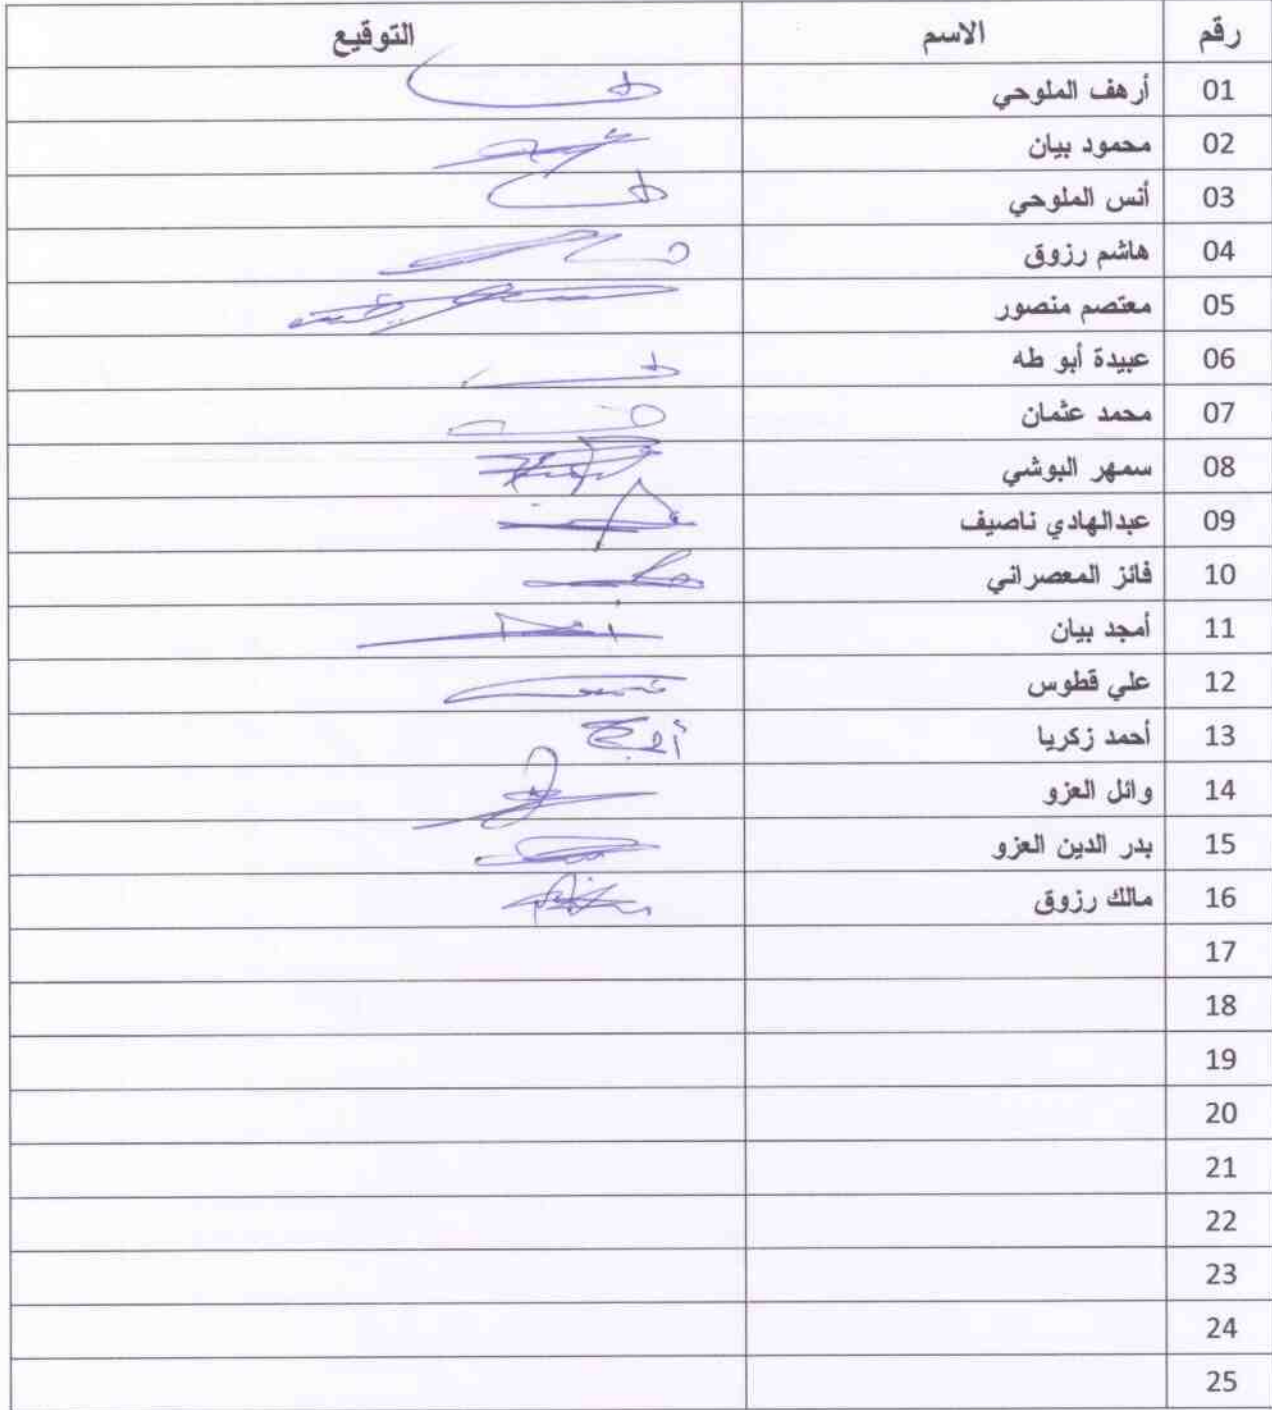 رقم الاسم التوقيع
01 أرهف الملوحي
02 محمود بيان
03 أنس الملوحي
04 هاشم رزوق
05 معتصم منصور
06 عبيدة أبو طه
07 محمد عثمان
08 سمهر البوشي
09 عبدالهادي ناصيف
10 فائز المعصراني
11 أمجد بيان
12 علي قطوس
13 أحمد زكريا
14 وائل العزو
15 بدر الدين العزو
16 مالك رزوق
17
18
19
20
21
22
23
24
25